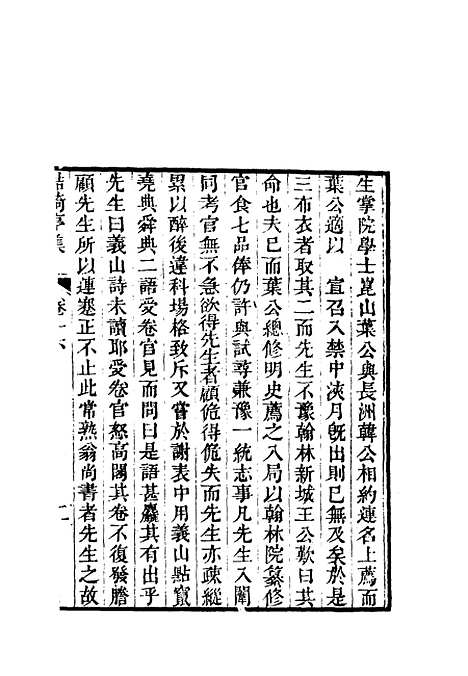 生掌院學士崑山葉公與長洲韓公相約連名上薦而
葉公適以　宣召入禁中浹月旣出則已無及矣於是
三布衣者取其二而先生不豫翰林新城王公歎曰其
命也夫已而葉公總修明史薦之入局以翰林院纂修
官食七品俸仍許與試尋兼豫一統志事凡先生入闈
同考官無不急欲得先生者顧佹得佹失而先生亦疎縱
累以醉後違科場格致斥又嘗於謝表中用義山點竄
堯典舜典二語受卷官見而問曰是語甚麤其有出乎
先生曰義山詩未讀耶受卷官怒高閣其卷不復發謄
顧先生所以連蹇正不止此常熟翁尚書者先生之故
鮚埼亭集
卷十六